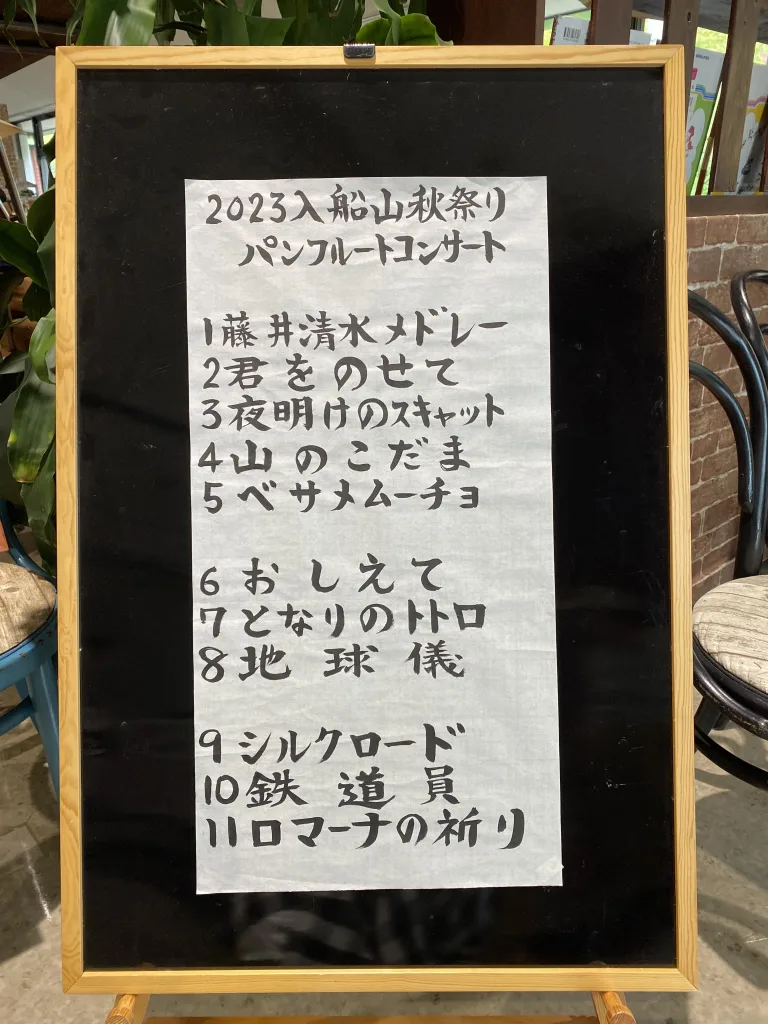 2023入船山秋祭り
パンフルートコンサート
1藤井清水メドレー
2君をのせて
3夜明けのスキャット
4山のこだま
5ベサメムーチョ
6おしえて
7となりのトトロ
8地球儀
9シルクロード
10鉄道員
11ロマーナの祈り